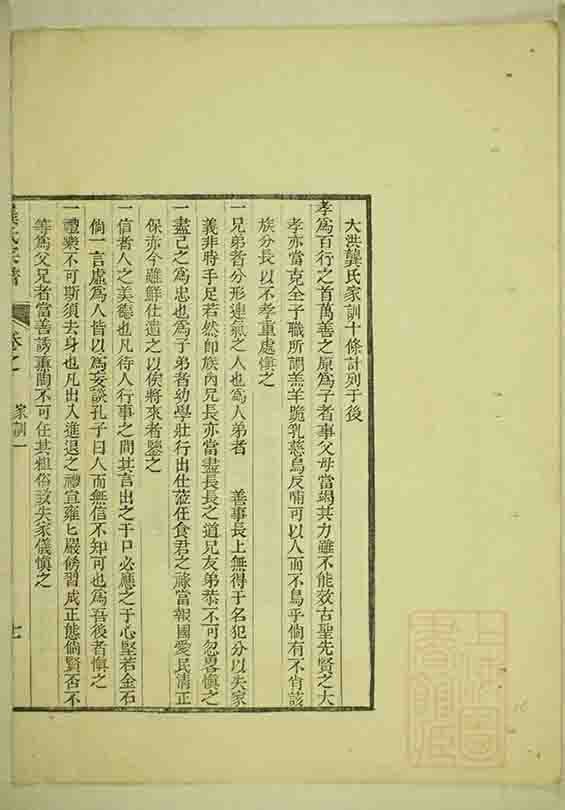 大洪龔氏家訓十條計列于後
孝爲百行之首萬善之原爲子者事父母當竭其力雖不能效古聖先賢之大
孝亦當克全子職所謂羔羊跪乳慈烏反哺可以人而不鳥乎倘有不肖該
族分長以不孝重處愼之
一兄弟者分形連氣之人也爲人弟者 善事長上無得于名犯分以失家
義非時手足若然卽族內兄長亦當盡長長之道兄友弟恭不可忽畧愼之
一盡己之爲忠也爲子弟者幼學壯行出仕蒞任食君之祿當報國愛民淸正
保亦今雖鮮仕遺之以俟將來者鑒之
一信者人之美德也凡待人行事之間其言出之于口必應之于心堅若金石
倘一言虛爲人皆以爲妄談孔子曰人而無信不知可也爲吾後者愼之
一禮樂不可斯須去身也凡出入進退之禮宣雍匕嚴飭習成正態倘賢否不
等爲父兄者當善誘熏陶不可任其粗俗致失家儀愼之
龔氏宗譜
卷之
家訓一
七
上海圖書館藏